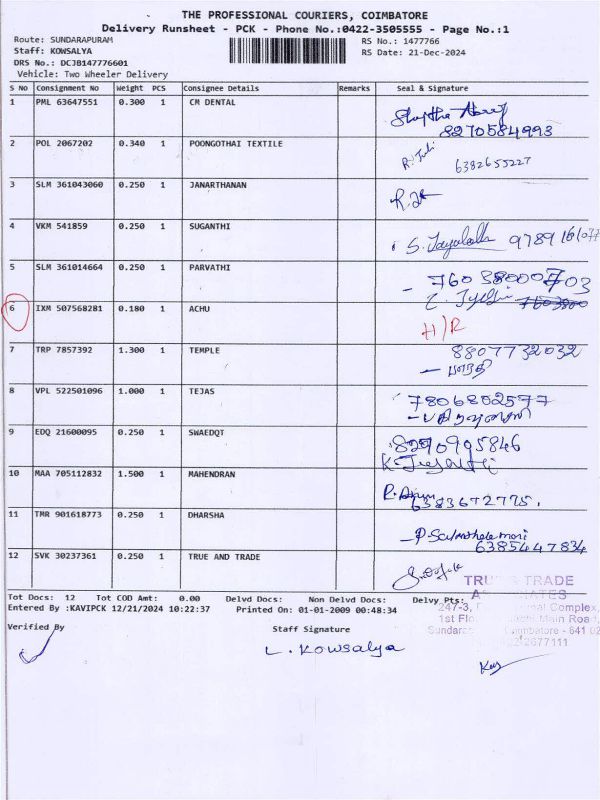 THE PROFESSIONAL COURIERS, COIMBATORE
Delivery Runsheet - PCK - Phone No.:0422-3505555 - Page No.:1
Route: SUNDARAPURAM RS No.: 1477766
Staff: KOWSALYA RS Date: 21-Dec-2024
DRS No.: DCJB147776601
Vehicle: Two Wheeler Delivery
S No Consignment No Weight PCS Consignee Details Remarks Seal & Signature
1 PML 63647551 0.300 1 CM DENTAL
8270584993
2 POL 2067202 0.340 1 POONGOTHAI TEXTILE
6382655227
3 SLM 361043060 0.250 1 JANARTHANAN
4 VKM 541859 0.250 1 SUGANTHI
5 SLM 361014664 0.250 1 PARVATHI
6 IXM 507568281 0.180 1 ACHU
H/R
7 TRP 7857392 1.300 1 TEMPLE 8807732032
8 VPL 522501096 1.000 1 TEJAS 7806802577
9 EDQ 21600095 0.250 1 SWAEDQT 8290995846
10 MAA 705112832 1.500 1 MAHENDRAN
6383672775.
11 TMR 901618773 0.250 1 DHARSHA
6385447834
12 SVK 30237361 0.250 1 TRUE AND TRADE
TRADE
Tot Docs: 12 Tot COD Amt: 0.00 Delvd Docs: Non Delvd Docs: Delvy Pts:
Entered By :KAVIPCK 12/21/2024 10:22:37 Printed On: 01-01-2009 00:48:34
247-3, Complex,
1st Main Road,
Verified By Staff Signature
L. Kowsalya